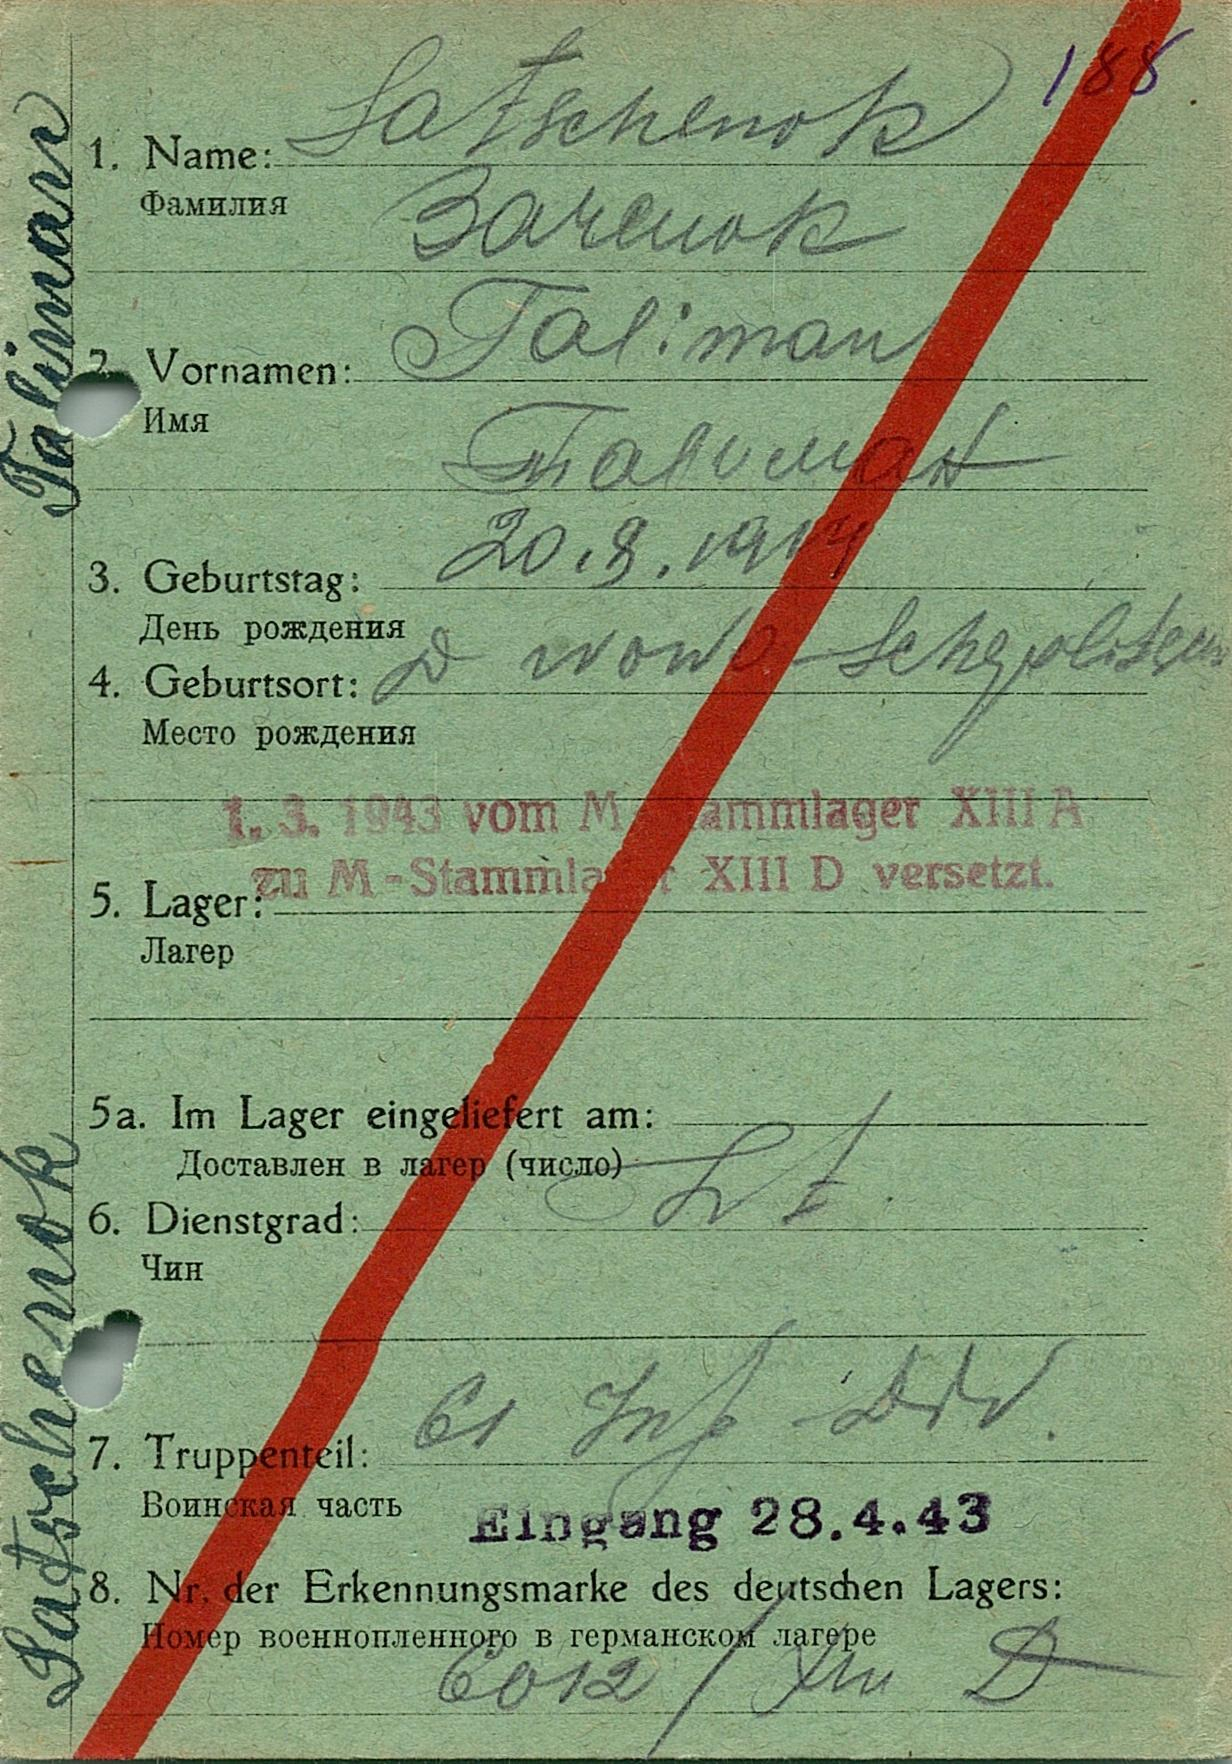 188
1. Name: Satschenok
Фамилия Заченок
2. Vornamen: Taliman
Имя Талиман
3. Geburtstag: 20.8.1914
День рождения
4. Geburtsort: D nowo
Место рождения
1. 3. 1943 vom M-Stammlager XIII A
zu M-Stammlager XIII D versetzt.
5. Lager:
Лагер
5a. Im Lager eingeliefert am:
Доставлен в лагер (число)
6. Dienstgrad: Lt.
Чин
7. Truppenteil: 61 Inf Div.
Воинская часть
Eingang 28.4.43
8. Nr. der Erkennungsmarke des deutschen Lagers:
Номер военнопленного в германском лагере
6012 / XIII D
Satschenok Taliman